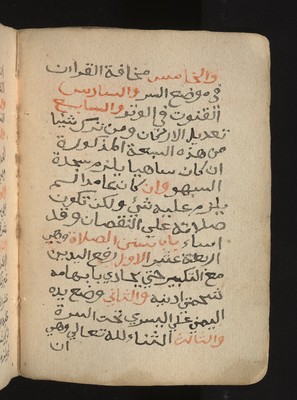 والخامس مخافة القران
في موضع السر والسادس
القنوت في الوتر والسابع
تعديل الاركان ومن ترك شيئا
من هذه السبعة المذكورة
ان كان ساهيا يلزم سجدة
السهو وان كان عامدا لم
يلزم عليه شئ ولكن تكون
صلاته علي النقصان وقد
اساء باب سنن الصلاة وهي
اربعة عشر الاول رفع اليدين
مع التكبير حتي يحاذي بابهامه
شحمتي اذنيه والثاني وضع يده
اليمني علي اليسري تحت السرة
والثالث الثناء لله تعالي وهي
ان